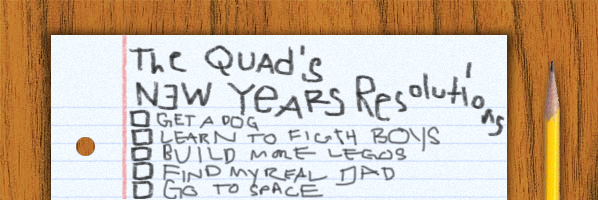 The QUAd's
NEW YEARS Resolutions
GET A DOG
LEARN TO FIGTH BOYS
BUILD MORE LEGOS
FIND MY REAL DAD
GO TO SPACE